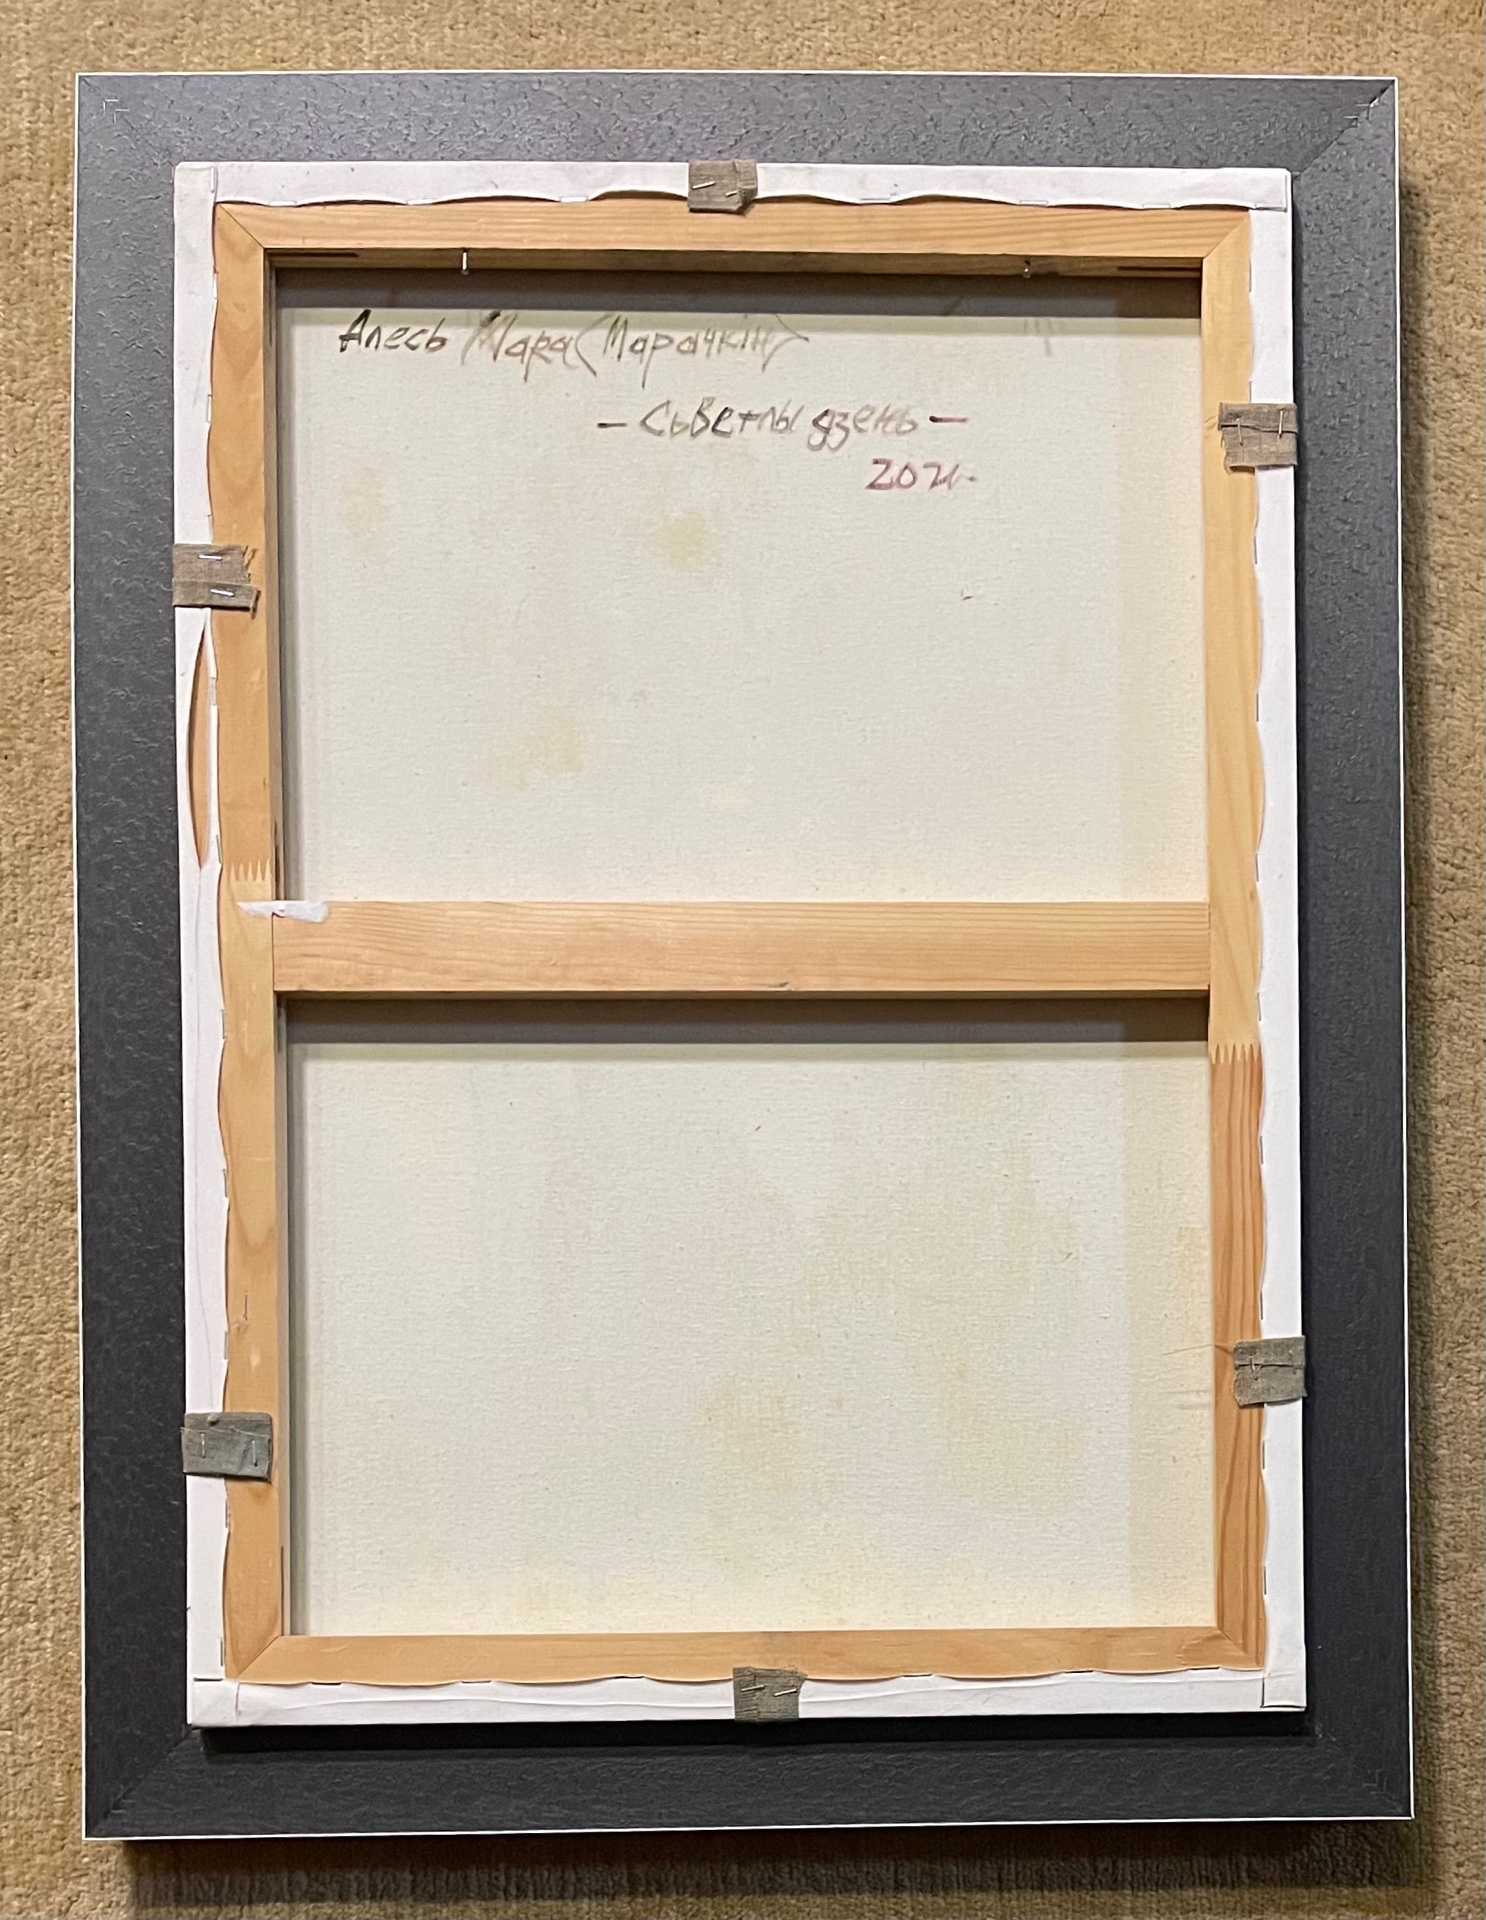 Алесь Мара (Марачкін)
— Сьветлы дзень —